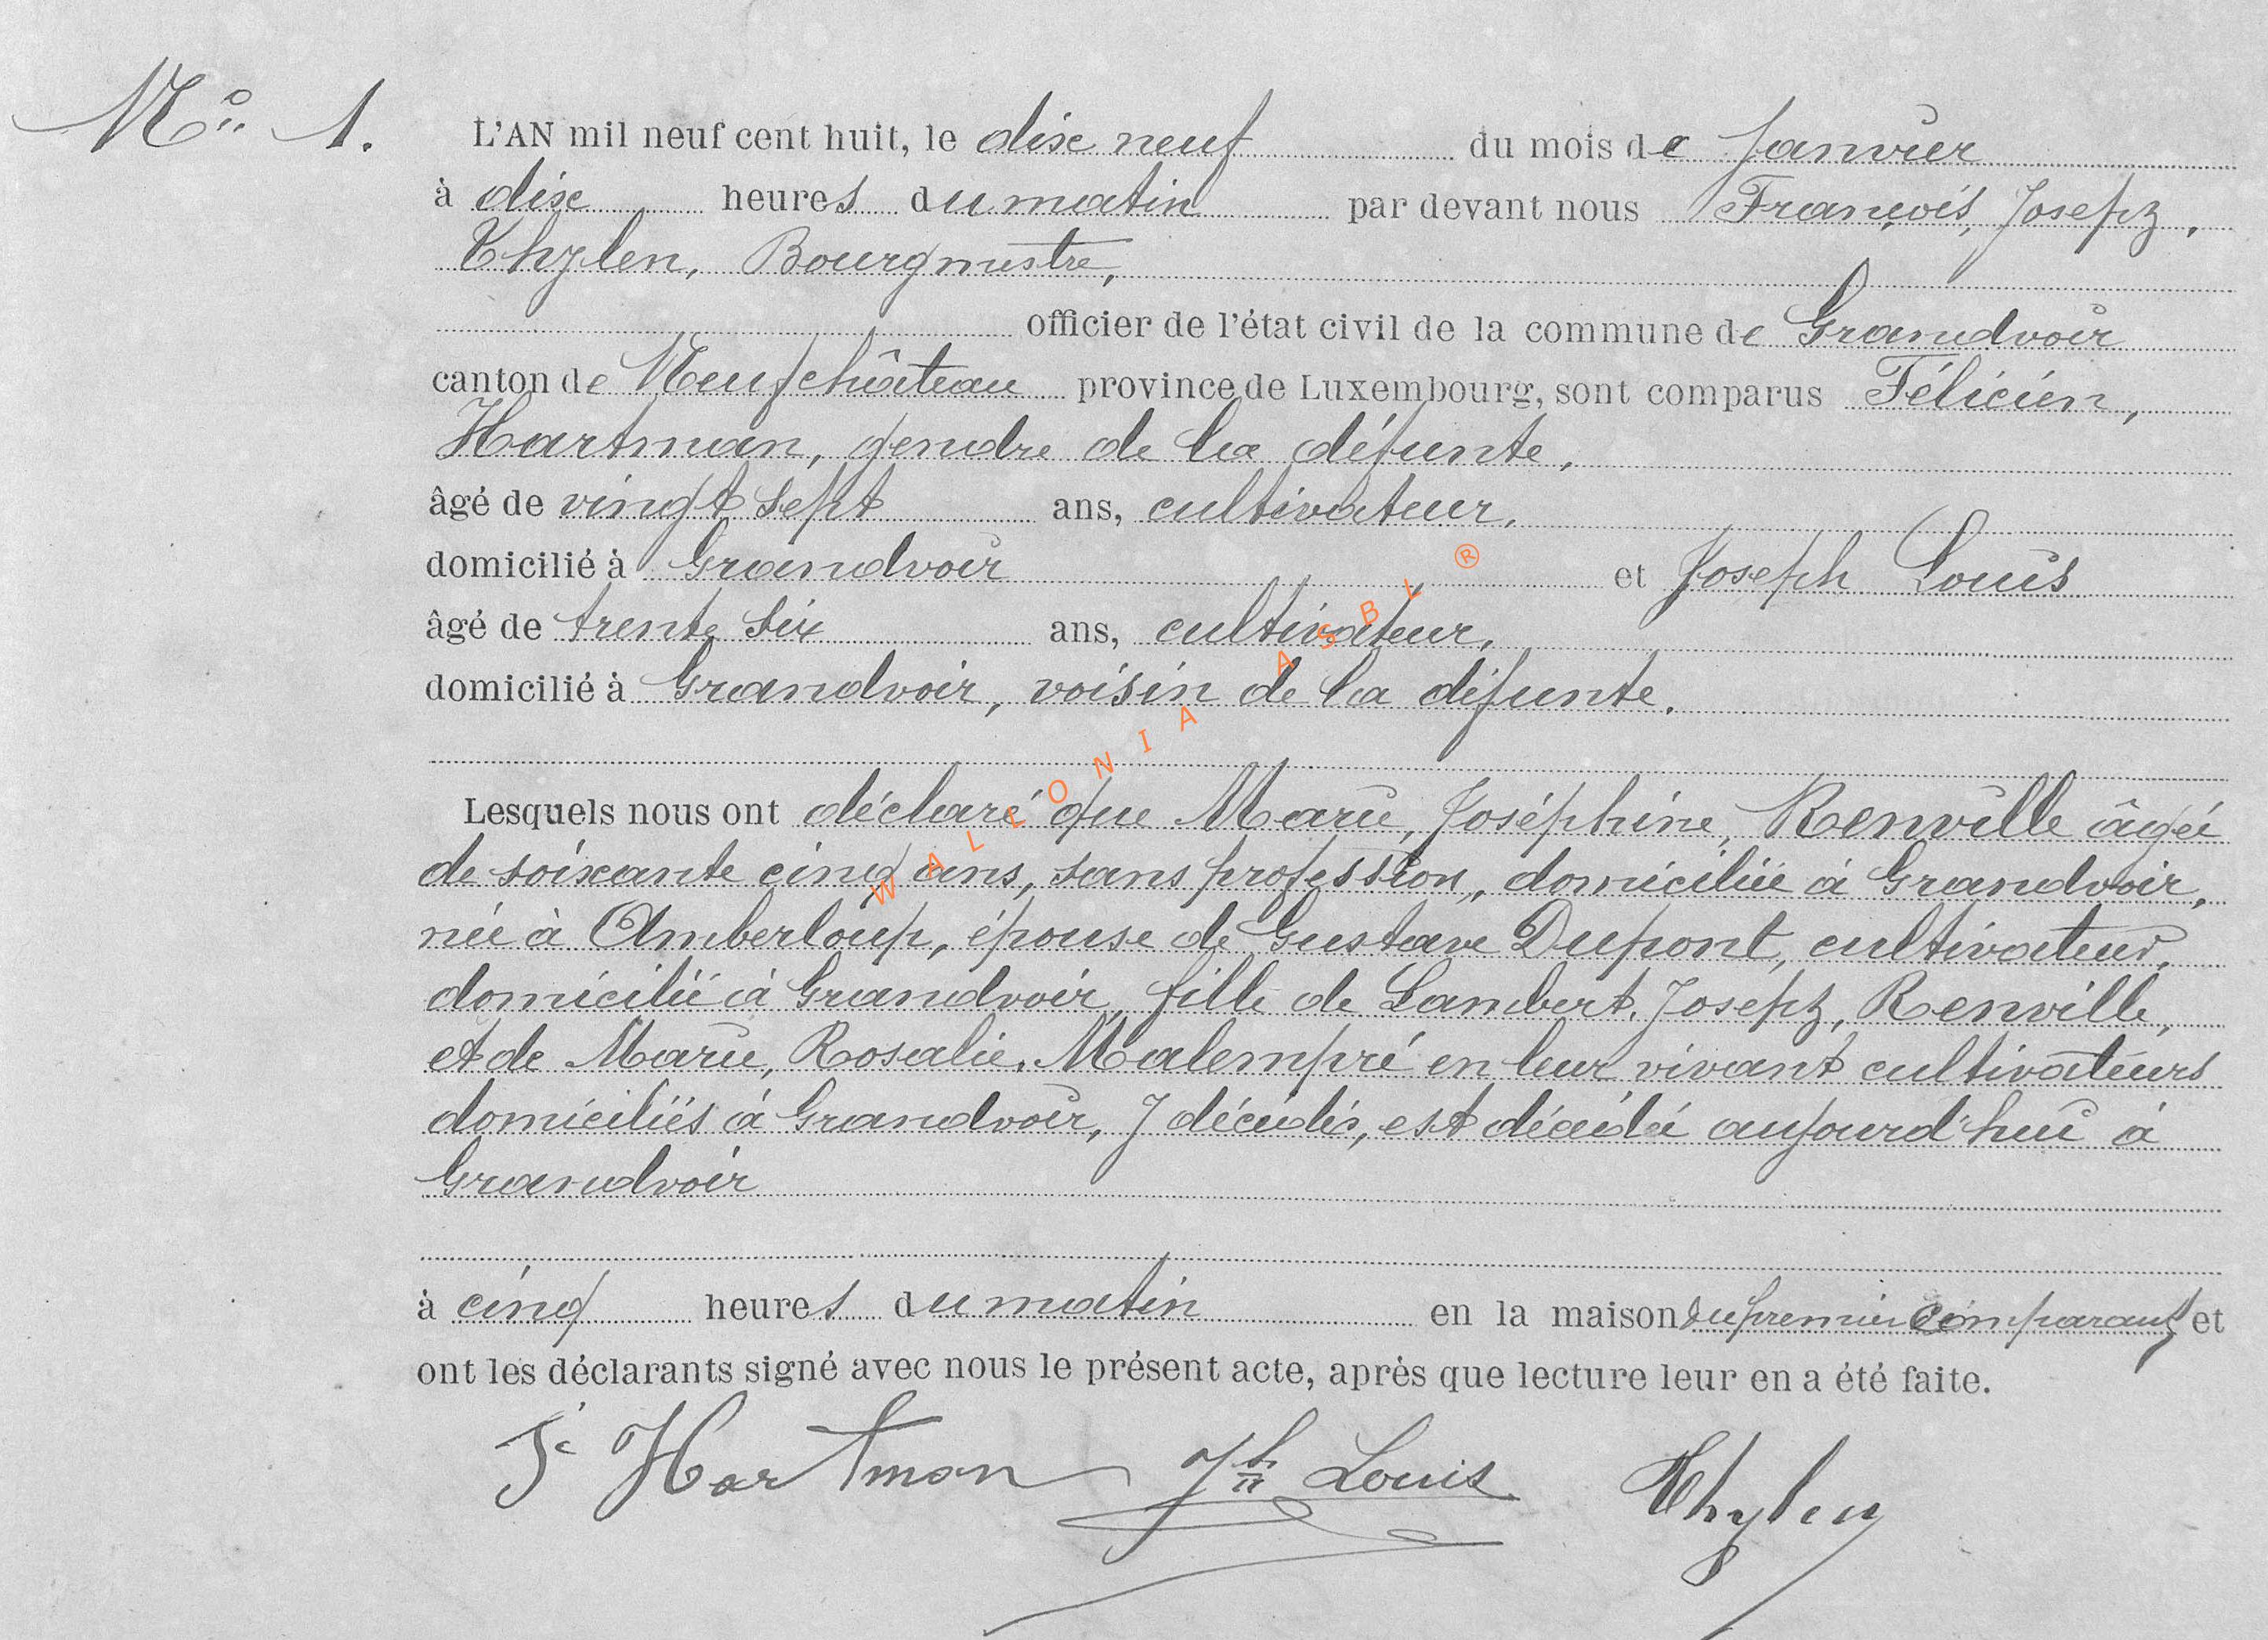 No. 1.
L'AN mil neuf cent huit, le dix neuf du mois de Janvier
à dix heures du matin par devant nous François, Joseph,
Thylen, Bourgmestre,
officier de l'état civil de la commune de Grandvoir
canton de Neufchâteau province de Luxembourg, sont comparus Félicien,
Hartman, gendre de la défunte,
âgé de vingt sept ans, cultivateur,
domicilié à Grandvoir et Joseph Louis
âgé de trente six ans, cultivateur,
domicilié à Grandvoir, voisin de la défunte.
Lesquels nous ont déclaré que Marie, Joséphine, Renville âgée
de soixante cinq ans, sans profession, domiciliée à Grandvoir,
née à Amberloup, épouse de Gustave Dupont, cultivateur,
domicilié à Grandvoir, fille de Lambert, Joseph, Renville,
et de Marie, Rosalie, Malempré en leur vivant cultivateurs
domiciliés à Grandvoir, y décédés, est décédée aujourd'hui à
Grandvoir
à cinq heures du matin en la maison du premier comparant et
ont les déclarants signé avec nous le présent acte, après que lecture leur en a été faite.
Hartman Jh Louis Thylen
WALLONIA ASBL ®